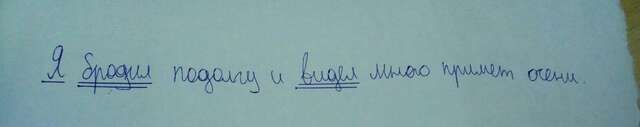 Я бродил подолгу и видел много примет осени.